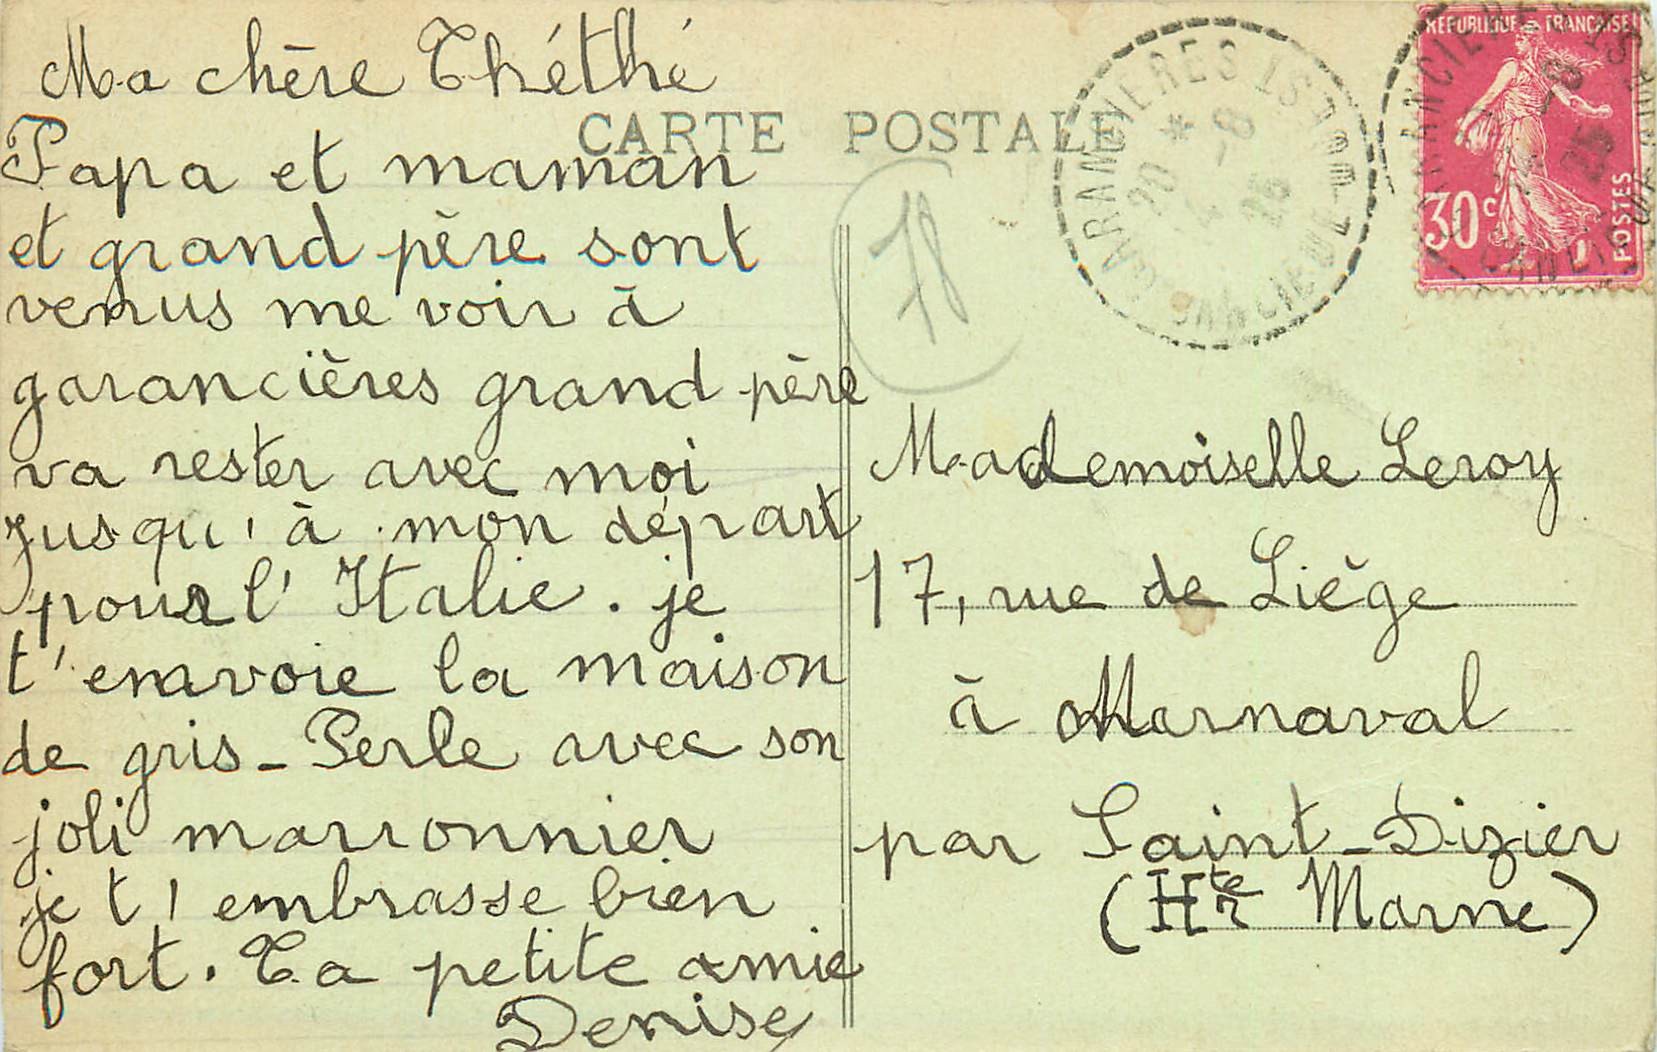 CARTE POSTALE
Ma chère Théthé
Papa et maman
et grand père sont
venus me voir à
garancières grand père
va rester avec moi
jusqu'à mon départ
pour l'Italie. je
t'envoie la maison
de gris-Perle avec son
joli marronnier
je t'embrasse bien
fort. Ta petite amie
Denise
18
GARANCIERES
20 *
4 -8
REPUBLIQUE FRANÇAISE
30c
POSTES
Mademoiselle Leroy
17, rue de Liège
à Marnaval
par Saint-Dizier
(Hte Marne)